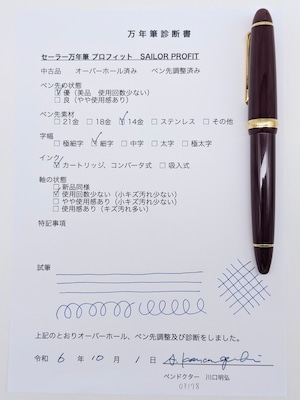 万年筆診断書
セーラー万年筆 プロフィット SAILOR PROFIT
中古品 オーバーホール済み ペン先調整済み
ペン先の状態
☑優（美品 使用回数少ない）
☐良（やや使用感あり）
ペン先素材
☐21金 ☐18金 ☑14金 ☐ステンレス ☐その他
字幅
☐極細字 ☑細字 ☐中字 ☐太字 ☐極太字
インク
☑カートリッジ、コンバータ式 ☐吸入式
軸の状態
☐新品同様
☑使用回数少ない（小キズ汚れ少ない）
☐やや使用感あり（小キズ汚れ少ない）
☐使用感あり（キズ汚れ多い）
特記事項
試筆
上記のとおりオーバーホール、ペン先調整及び診断をしました。
令和 6 年 10 月 1 日
ペンドクター 川口明弘